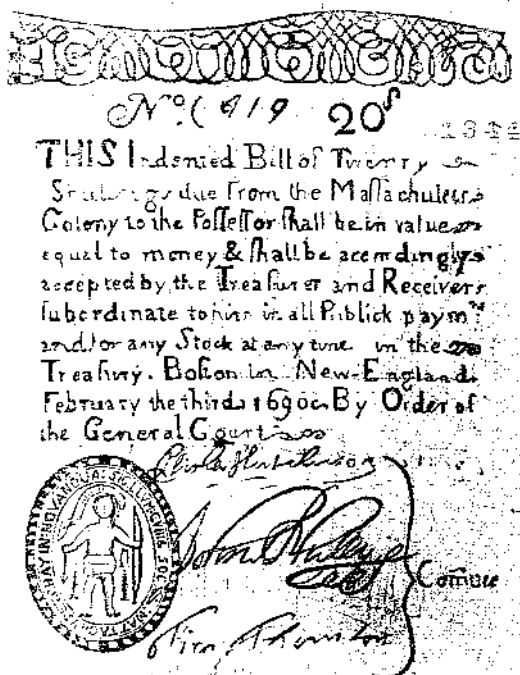 No. (   20s
THIS Indented Bill of Twenty
Shillings due from the Maſſachuſets
Colony to the Poſſeſſor ſhall be in value
equal to money & ſhall be accordingly
accepted by the Treaſurer and Receivers
ſubordinate to him in all Publick paymts
and for any Stock at any time in the
Treaſury. Boſton in New-England
February the third 1690. By Order of
the General Court
Eliſha Hutchinson
John
Tim. Thornton
Comtee